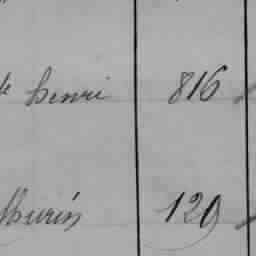 henri 816
thurin 129